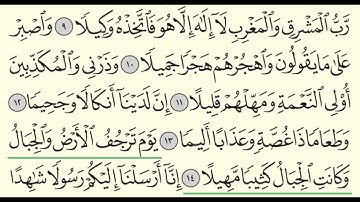 رَّبُّ ٱلْمَشْرِقِ وَٱلْمَغْرِبِ لَآ إِلَٰهَ إِلَّا هُوَ فَٱتَّخِذْهُ وَكِيلًا ٩ وَٱصْبِرْ
عَلَىٰ مَا يَقُولُونَ وَٱهْجُرْهُمْ هَجْرًا جَمِيلًا ١٠ وَذَرْنِى وَٱلْمُكَذِّبِينَ
أُو۟لِى ٱلنَّعْمَةِ وَمَهِّلْهُمْ قَلِيلًا ١١ إِنَّ لَدَيْنَآ أَنكَالًا وَجَحِيمًا ١٢
وَطَعَامًا ذَا غُصَّةٍ وَعَذَابًا أَلِيمًا ١٣ يَوْمَ تَرْجُفُ ٱلْأَرْضُ وَٱلْجِبَالُ
وَكَانَتِ ٱلْجِبَالُ كَثِيبًا مَّهِيلًا ١٤ إِنَّآ أَرْسَلْنَآ إِلَيْكُمْ رَسُولًا شَٰهِدًا